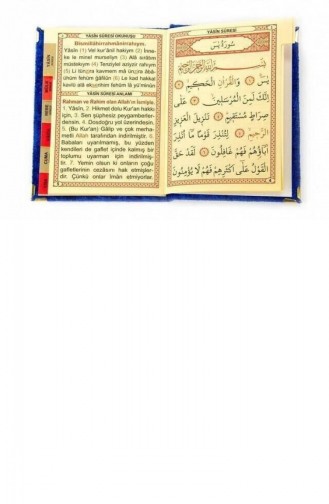 YÂSİN SÛRESİ OKUNUŞU
Bismillâhirrahmânirrahıym.
Yâsîn (1) Vel kur'ânil hakiym (2) İnne-
ke le minel murseliyn (3) Alâ sırâtım
müstekıym (4) Tenziylel aziyzir rahıym
(5) Li tünzira kavmem mâ ünzira âbâ-
ühüm fehüm ğâfilûn (6) Le kad hakkal
kavlü alâ ekserihim fehüm lâ yü'minûn
YÂSİN SÛRESİ ANLAMI
Rahman ve Rahim olan Allah'ın ismiyle.
1. Yâsîn, 2. Hikmet dolu Kur'an hakkı
için, 3. Sen şüphesiz peygamberler-
densin. 4. Dosdoğru yol üzerindesin.
5. (Bu Kur'an) Gâlip ve çok merha-
metli Allah tarafından indirilmiştir. 6.
Babaları uyarılmamış, bu yüzden
kendileri de gaflet içinde kalmış bir
toplumu uyarman için indirilmiş-
tir. 7. Yemin olsun ki onların çoğu
gafletlerinin cezasını hak etmişler-
dir. Çünkü onlar îman etmiyorlar.
YÂSİN SÛRESİ
سُورَةُ يٰسٓ
بِسْمِ اللّٰهِ الرَّحْمٰنِ الرَّحِيمِ
يٰسٓ وَالْقُرْاٰنِ الْحَكِيمِ
اِنَّكَ لَمِنَ الْمُرْسَلِينَ عَلٰى
صِرَاطٍ مُسْتَقِيمٍ تَنْزِيلَ الْعَزِيزِ
الرَّحِيمِ لِتُنْذِرَ قَوْمًا مَا اُنْذِرَ
اٰبَاؤُهُمْ فَهُمْ غَافِلُونَ لَقَدْ حَقَّ
الْقَوْلُ عَلٰى اَكْثَرِهِمْ فَهُمْ لَا يُؤْمِنُونَ
YÂSİN
CUMA